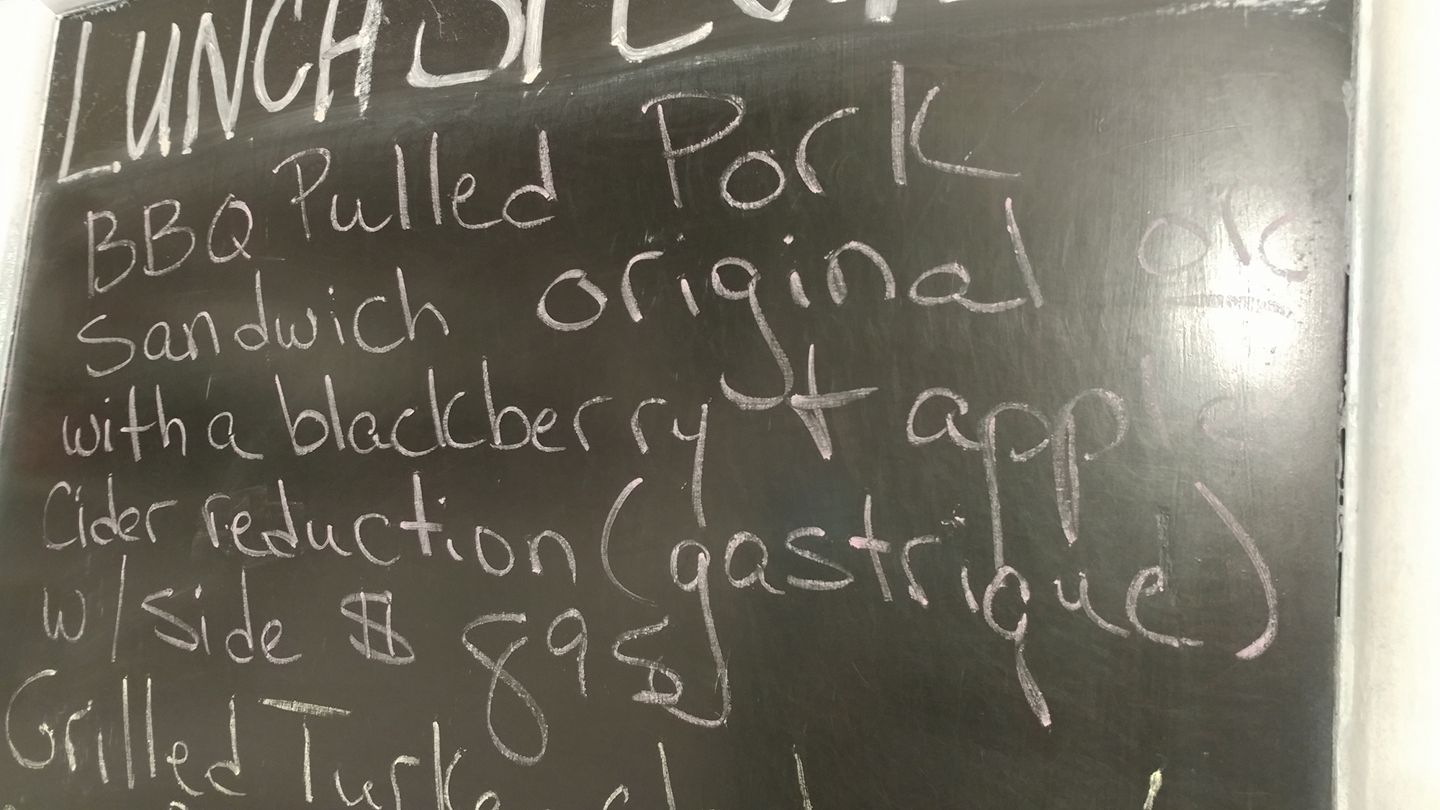 LUNCH SPECIAL
BBQ Pulled Pork
Sandwich original or
with a blackberry + apple
Cider reduction (gastrique)
w/ side $ 895
Grilled Turkey